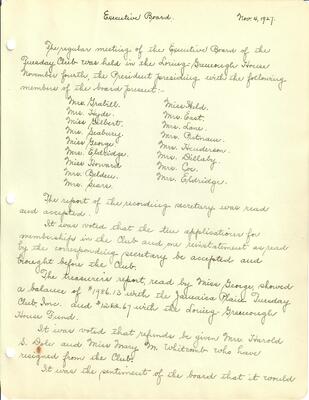 Executive Board. Nov. 4, 1927.
The regular meeting of the Executive Board of the
Tuesday Club was held in the Loring-Greenough House
November fourth, the President presiding with the following
members of the board present:-
Mrs. Grabill. Miss Hold.
Mrs. Hyde. Mrs. East.
Miss Gilbert. Mrs. Lane.
Mrs. Seabury. Mrs. Putnam.
Miss George. Mrs. Henderson.
Mrs. Eldridge. Mrs. Dillaby.
Miss Howard Mrs. Coe.
Mrs. Belden. Mrs. Eldridge.
Mrs. Sears.
The report of the recording secretary was read
and accepted.
It was voted that the applications for
memberships in the Club and one reinstatement as read
by the corresponding secretary be accepted and
brought before the Club.
The treasurer's report, read by Miss George, showed
a balance of $1986.13 with the Jamaica Plain Tuesday
Club, Inc. and $1268.67 with the Loring-Greenough
House Fund.
It was voted that refunds be given Mrs. Harold
S. Dole and Miss Mary M. Whitcomb who have
resigned from the Club.
It was the sentiment of the board that it would